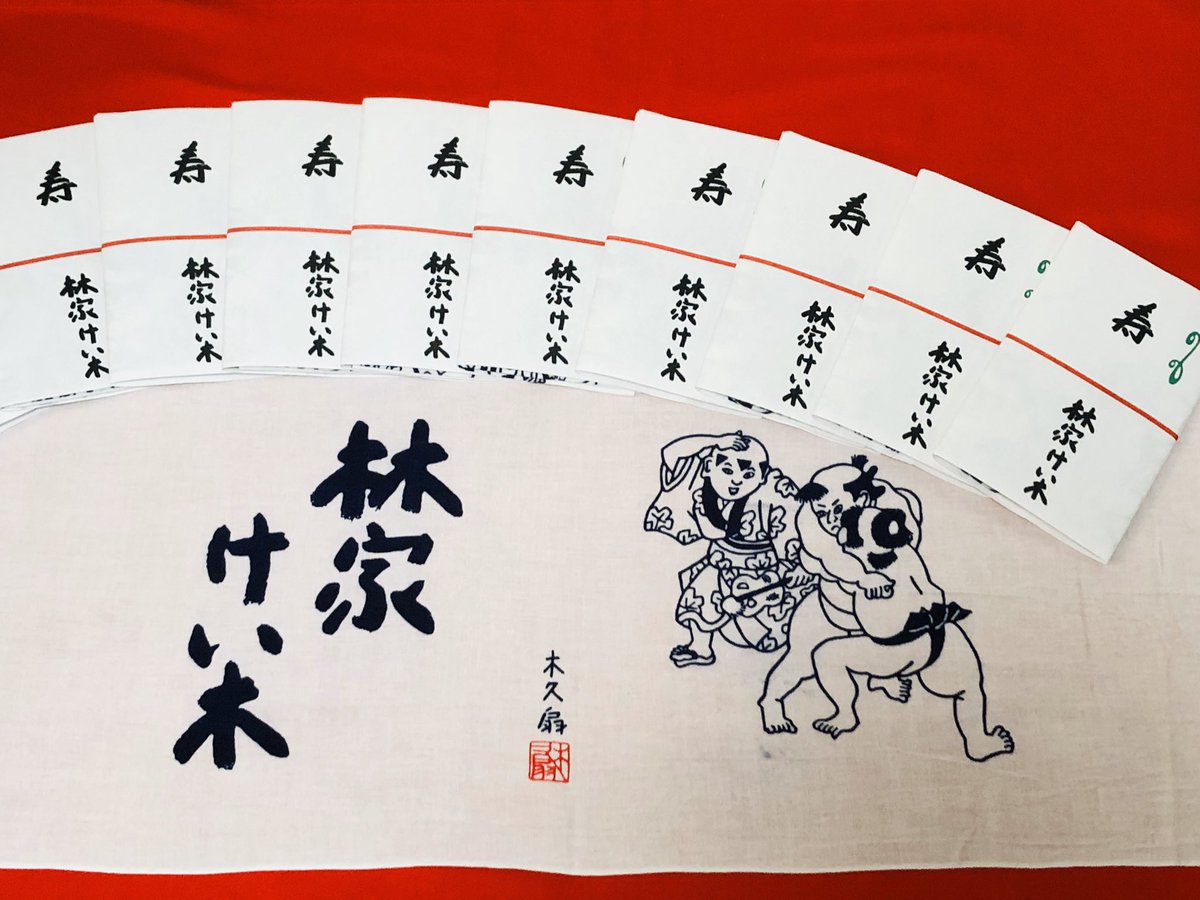 寿
林家けい木
寿
林家けい木
寿
林家けい木
寿
林家けい木
寿
林家けい木
寿
林家けい木
寿
林家けい木
寿
林家けい木
寿
林家けい木
林家
けい木
木久扇
木久扇